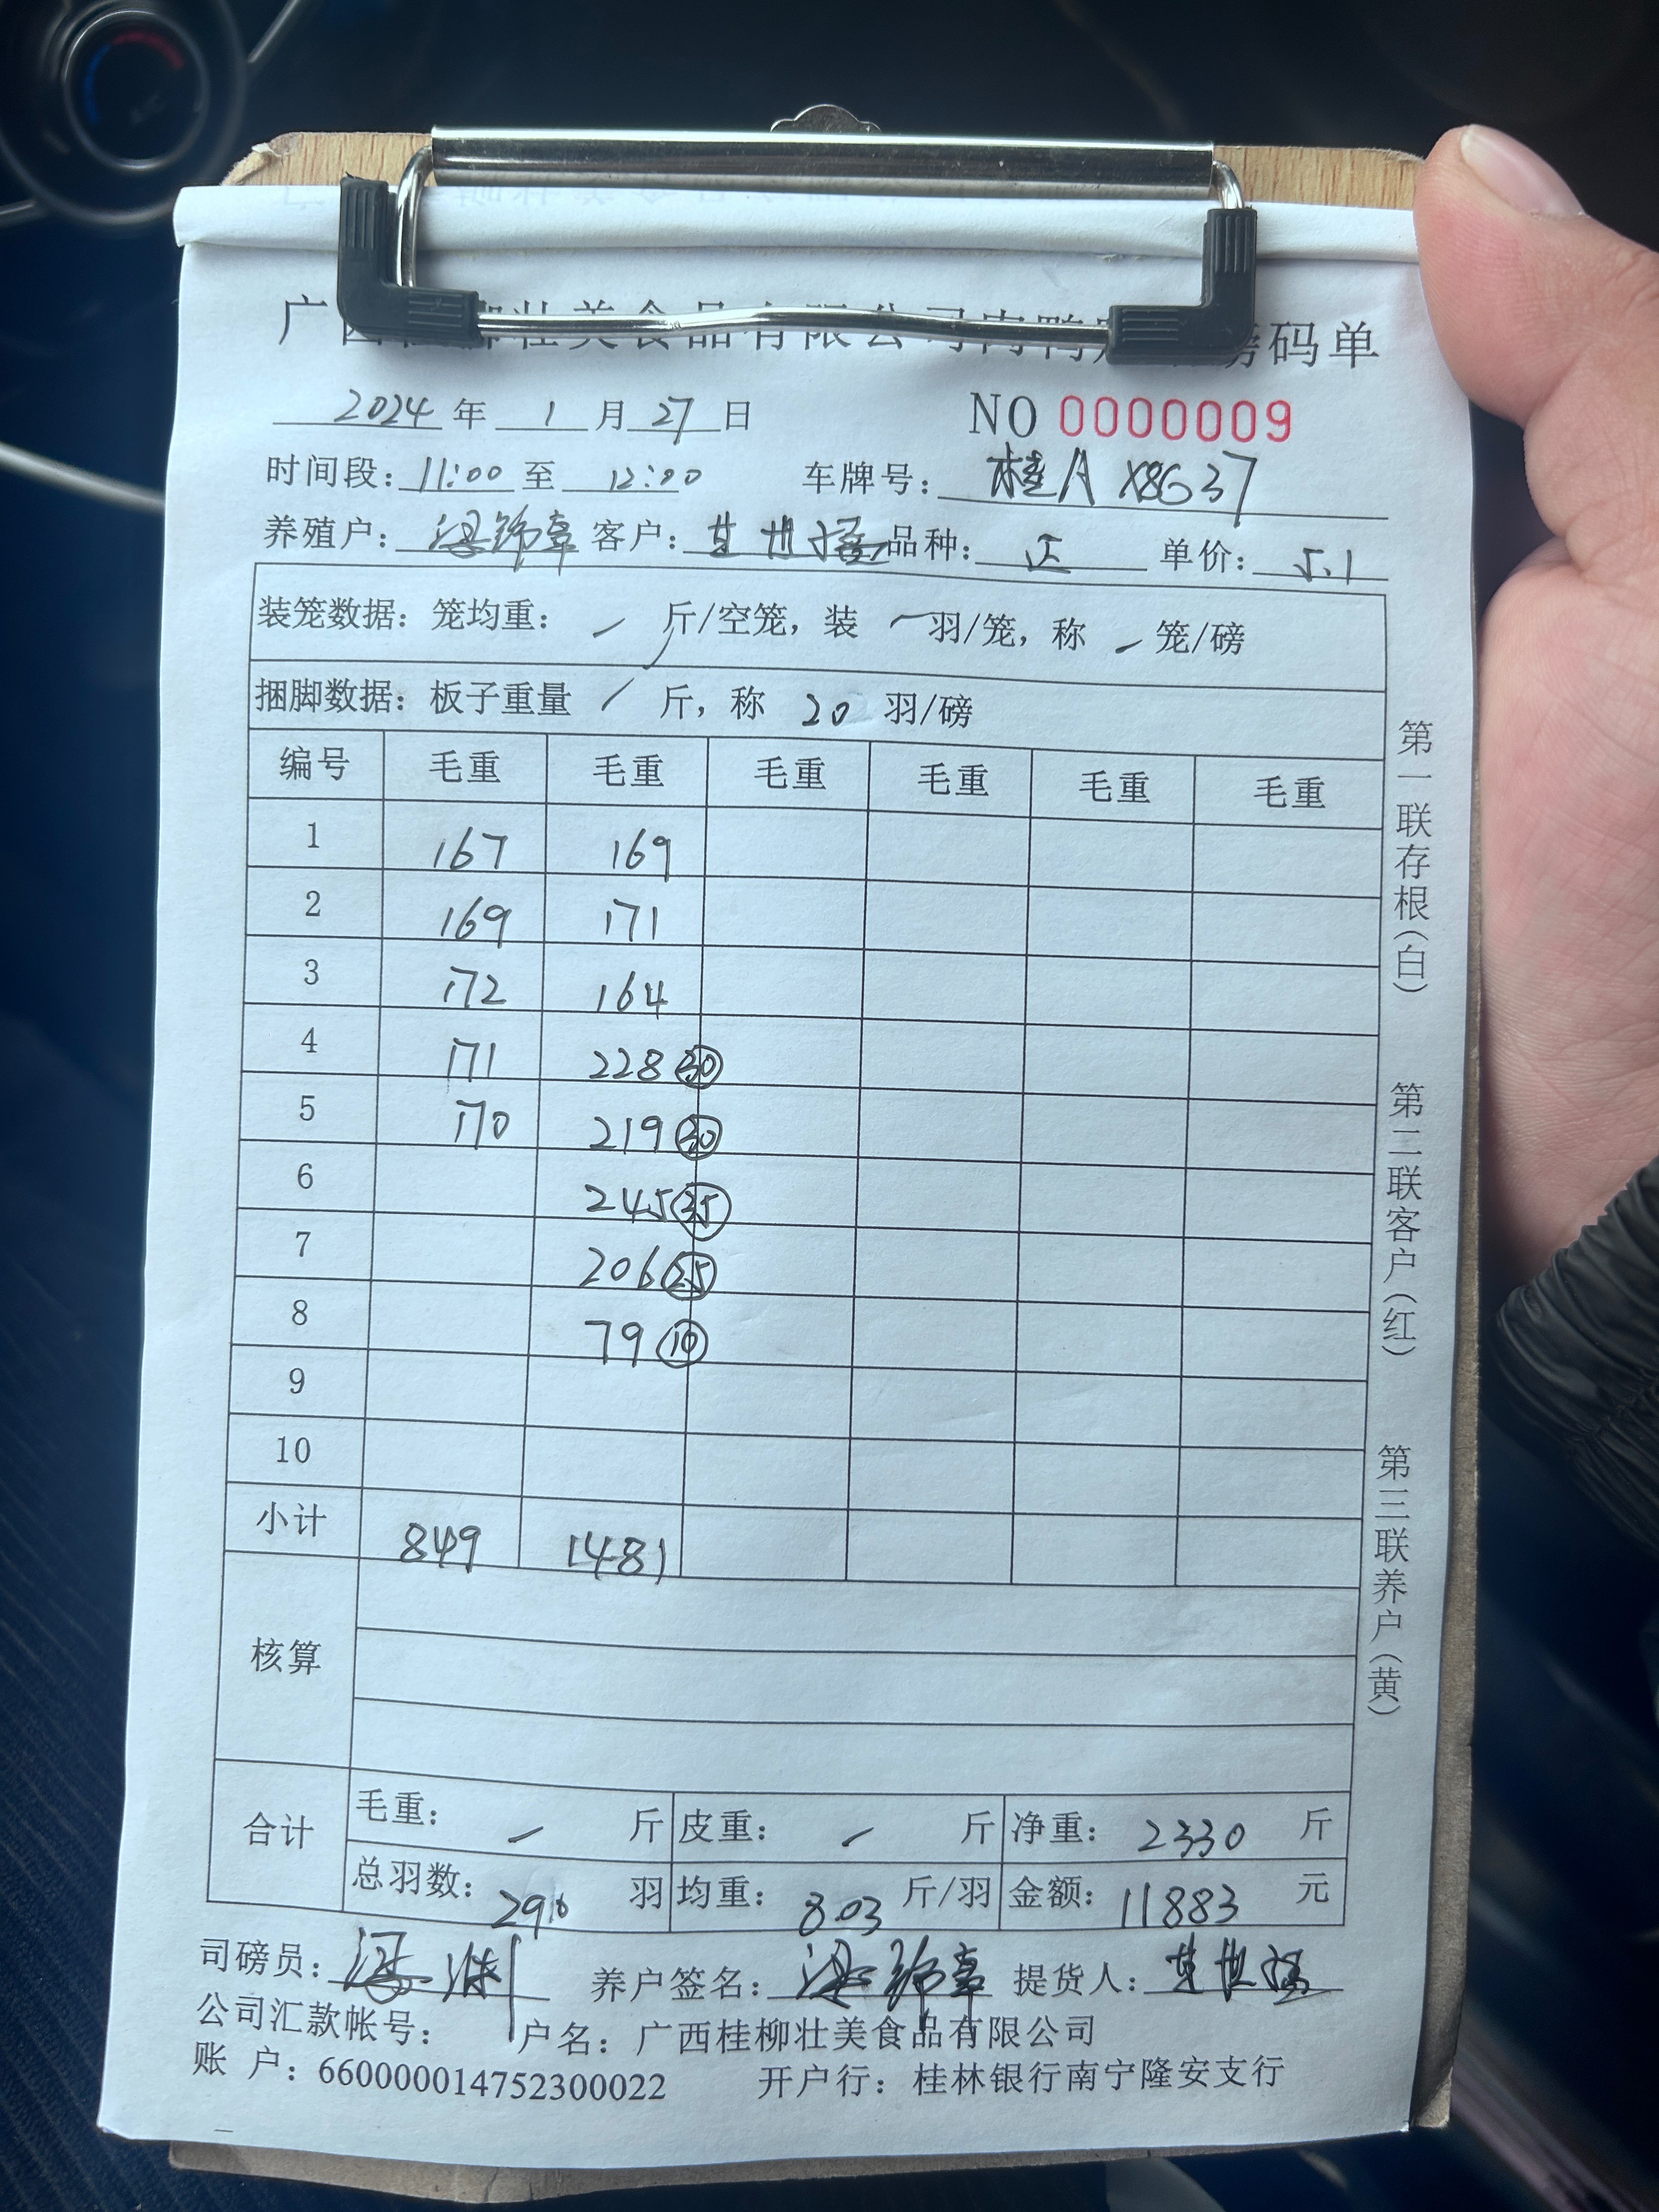 广西桂柳壮美食品有限公司肉鸭 磅码单
2024年 1 月 27 日 NO 0000009
时间段: 11:00 至 12:00 车牌号: 桂A X8G37
养殖户: 梁锦章 客户: 甘世 品种: 正 单价: 5.1
装笼数据: 笼均重: - 斤/空笼, 装 - 羽/笼, 称 - 笼/磅
捆脚数据: 板子重量 / 斤, 称 20 羽/磅
编号 毛重 毛重 毛重 毛重 毛重 毛重
1 167 169
2 169 171
3 172 164
4 171 228 30
5 170 219 30
6 245 35
7 206 25
8 79 10
9
10
小计 849 1481
核算
合计 毛重: - 斤 皮重: - 斤 净重: 2330 斤
总羽数: 290 羽 均重: 8.03 斤/羽 金额: 11883 元
司磅员: 养户签名: 梁锦章 提货人: 甘世
公司汇款帐号: 户名: 广西桂柳壮美食品有限公司
账 户: 660000014752300022 开户行: 桂林银行南宁隆安支行
第一联存根(白) 第二联客户(红) 第三联养户(黄)